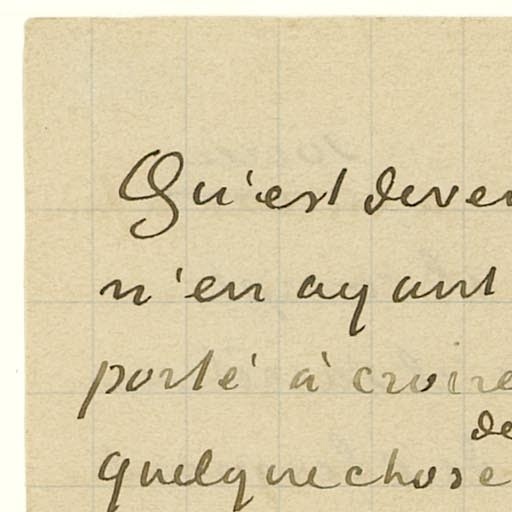 Qu'est deven
n'en ayant
porté à croire
de
quelque chose